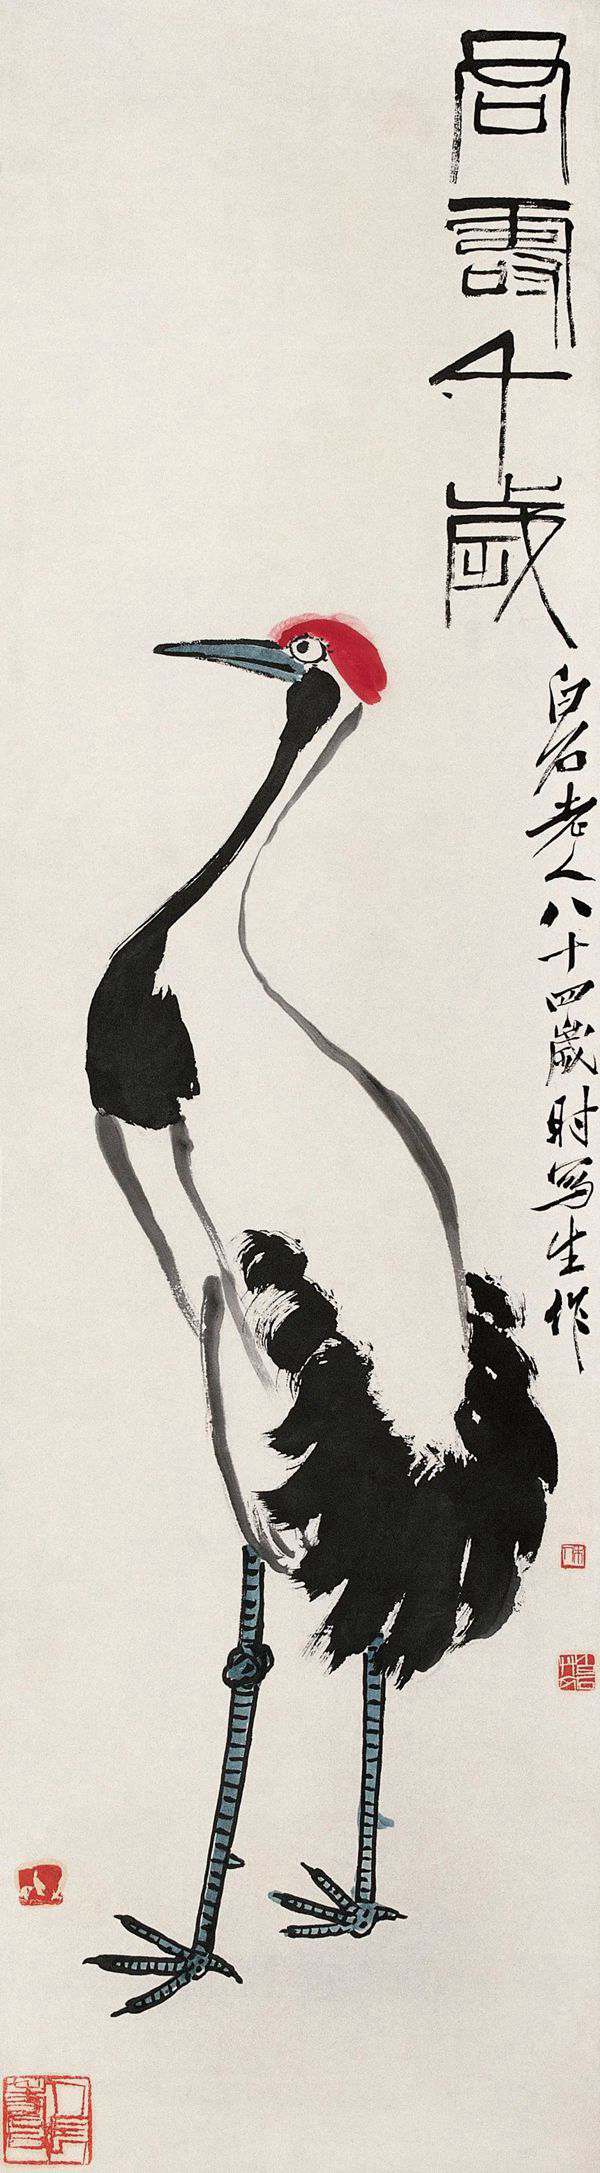 君壽千歲
白石老人八十四歲时写生作